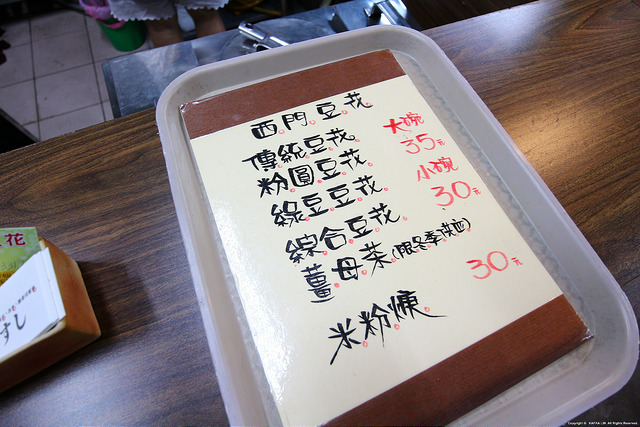 西門豆花
傳統豆花
大碗
35元
粉圓豆花
綠豆豆花
小碗
30元
綜合豆花
薑母茶(限冬季供應)
30元
米粉焿
花
すし